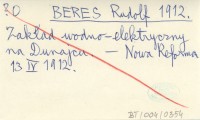 30 BERES Rudolf 1912.
Zakład wodno-elektryczny
na Dunajcu. — Nowa Reforma
13 IV 1912.
BJ/004/0354